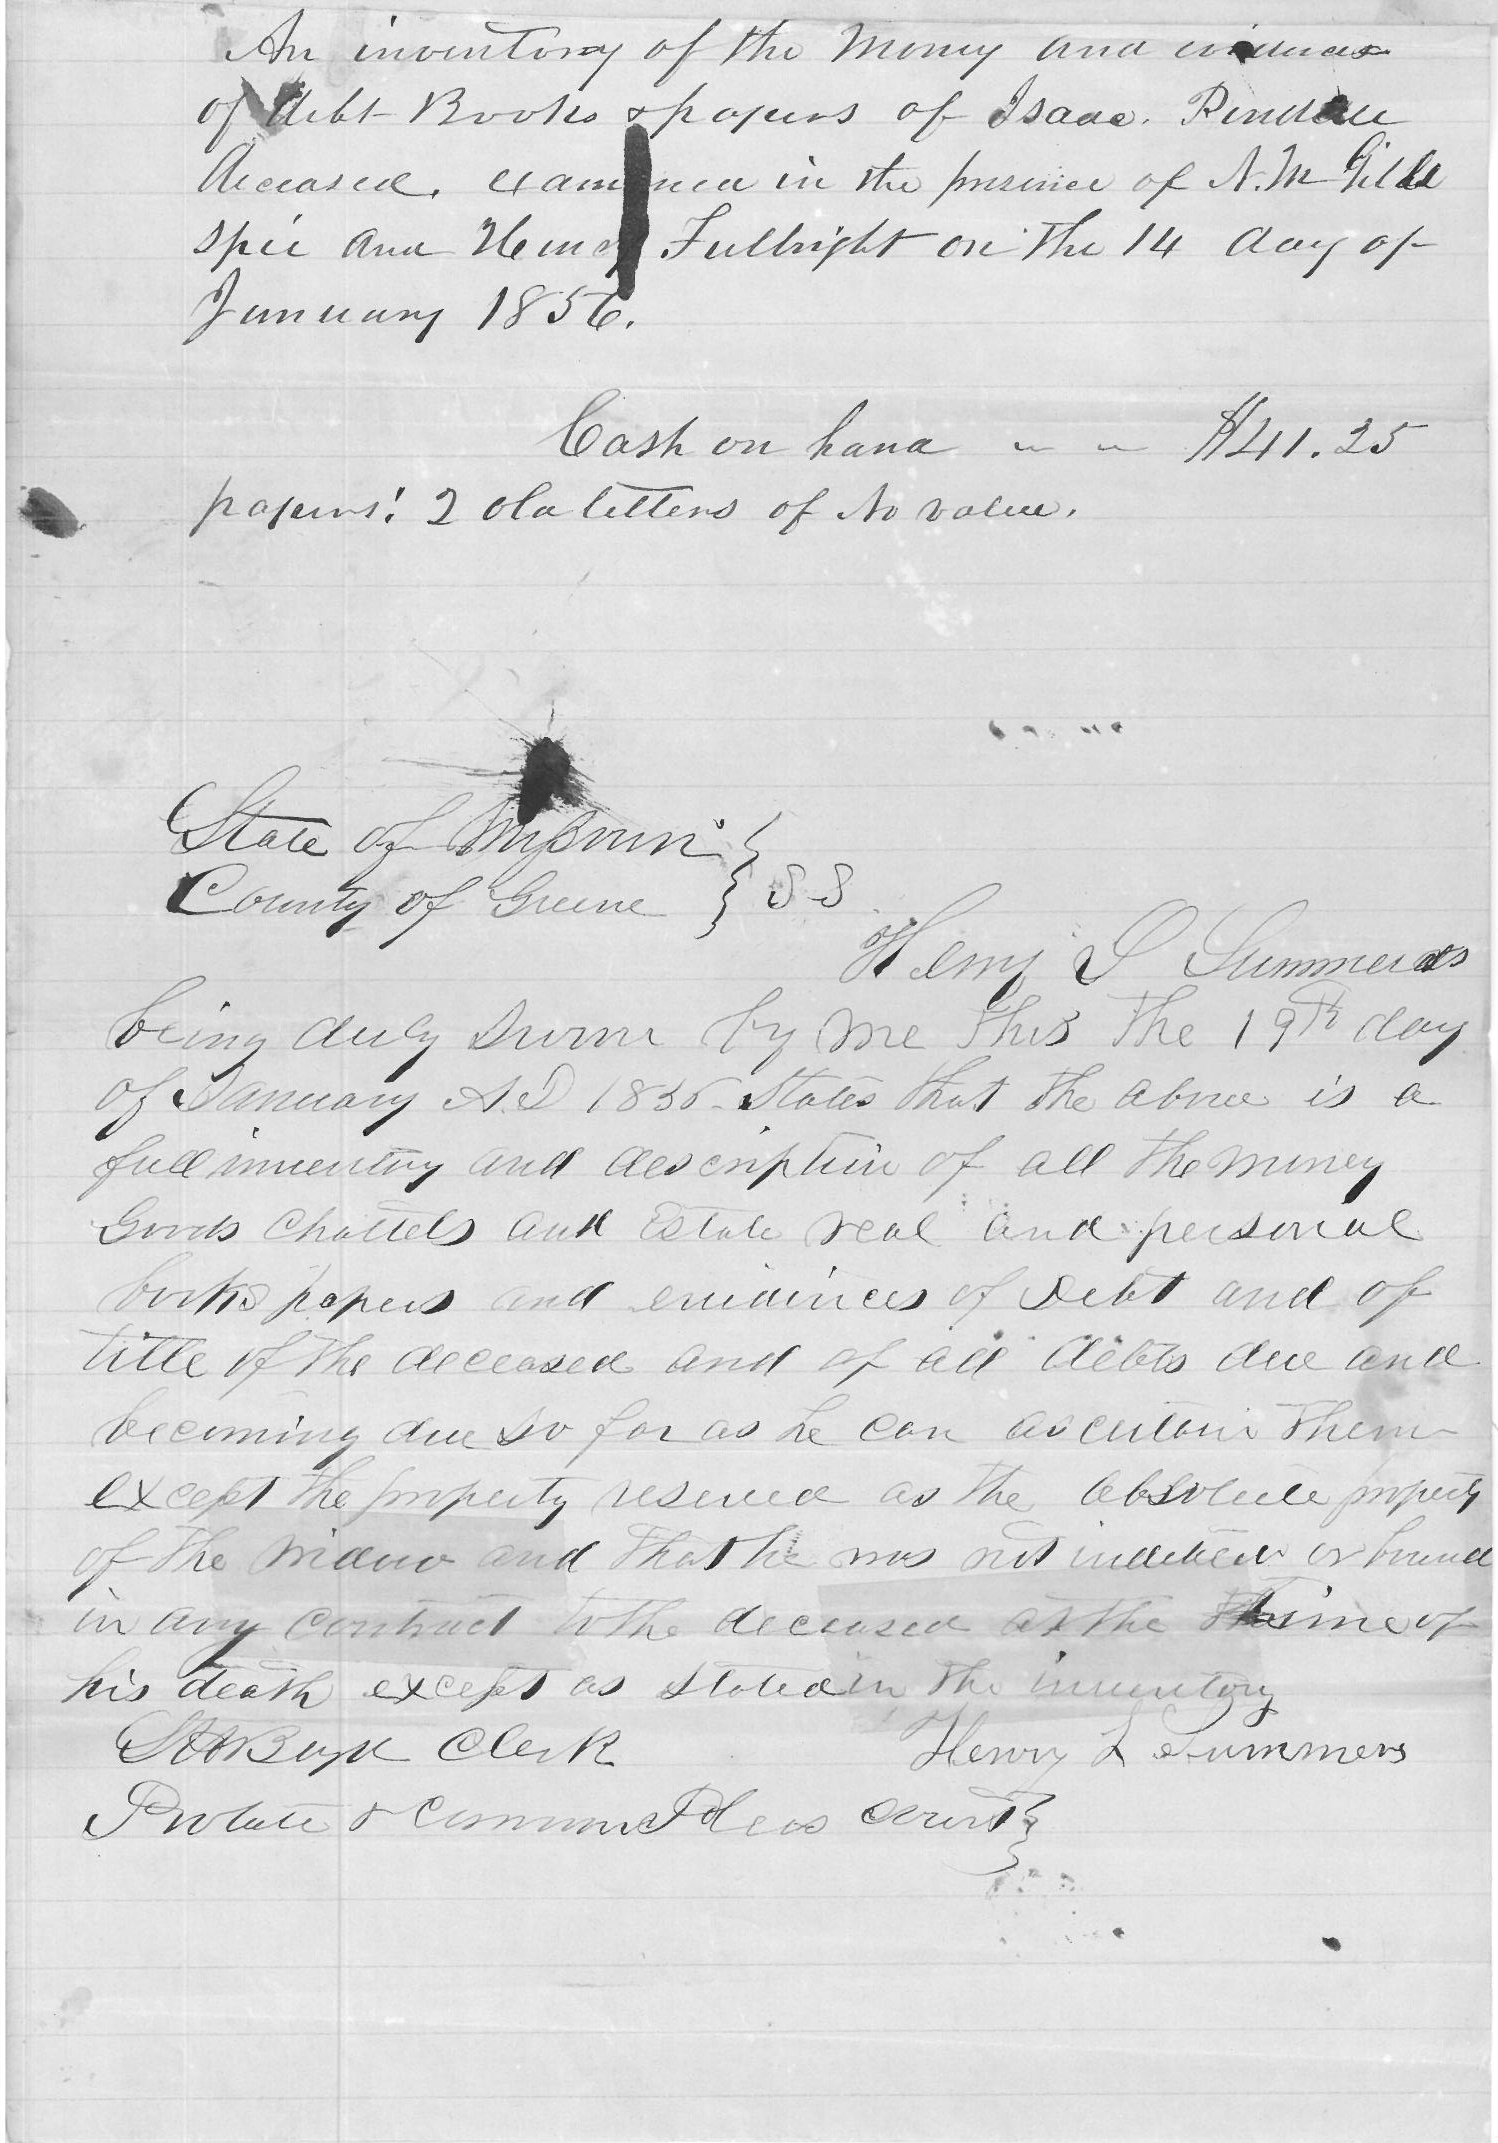 An inventory of the Money and evidences
of debt Books & papers of Isaac. Rendale
deceased. examined in the presence of N. M Gille
spie and Henry Fulbright on the 14 day of
January 1856.
Cash on hand " " $41.25
papers: 2 old letters of No value.
State of Missouri }
County of Greene } SS
Henry L Summers
being duly Sworn by me this the 19th day
of January A.D 1856 States that the above is a
full inventory and description of all the money
Goods Chattels and Estate real and personal
books papers and evidences of Debt and of
title of the deceased and of all debts due and
becoming due so far as he can ascertain them
except the property reserved as the absolute property
of the widow and that he was not indebted or bound
in any contract to the deceased at the time of
his death except as stated in the inventory
Henry L Summers
Boyd Clerk
Probate & Common Pleas Court }